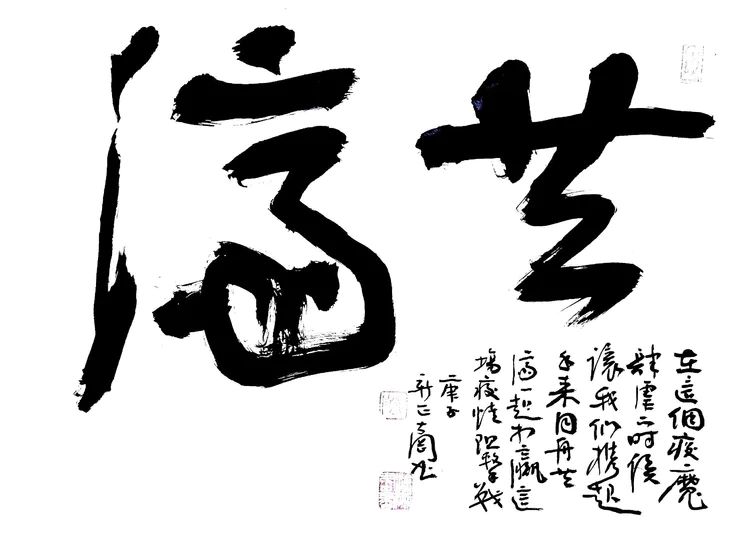 共濟
在這個疫魔
肆虐之時候
讓我們携起
手来同舟共
濟一起打贏這
場疫情阻擊戰
庚子
新正